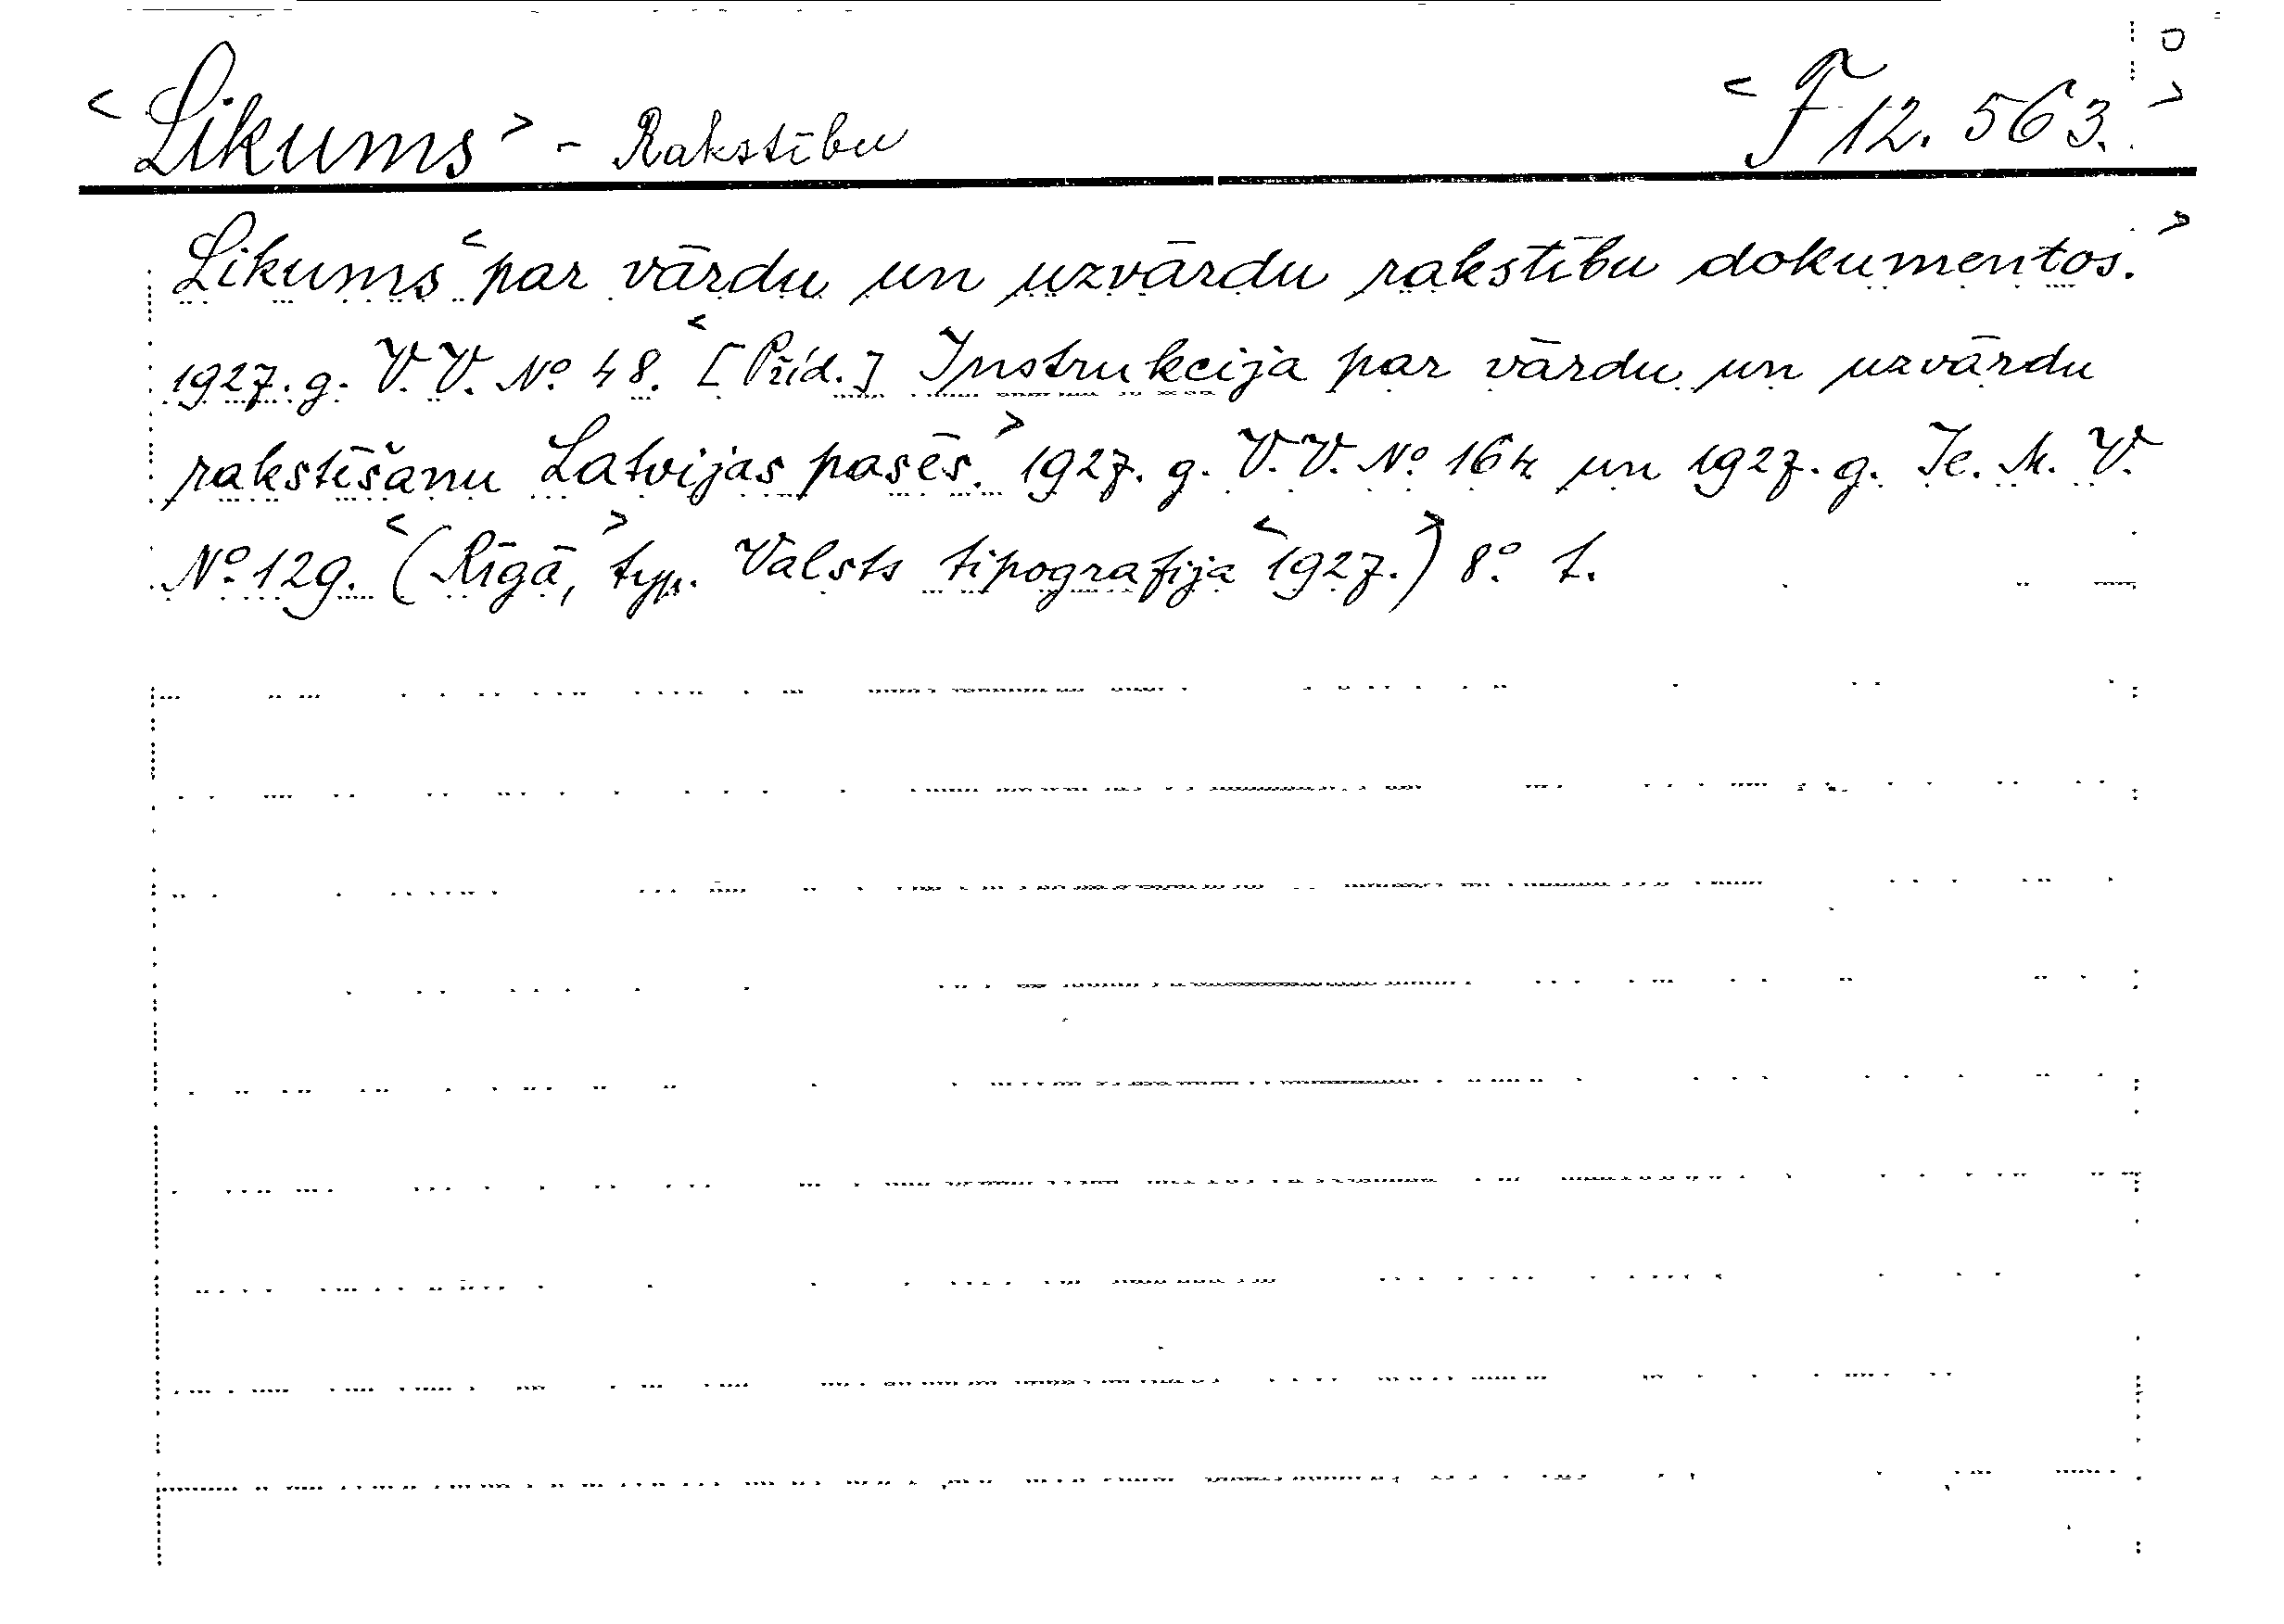 <Likums> - Rakstību <F 12. 563.>
Likums <par vārdu un uzvārdu rakstību dokumentos.>
1927. g. V. V. No. 48. <[Příd.] Instrukcija par vārdu un uzvārdu
rakstīšanu Latvijas pasēs.> 1927. g. V. V. No. 164 un 1927. g. Ie. M. V.
No. 129. <(Rīgā,> typ. Valsts tipografija <1927.)> 8o. t.